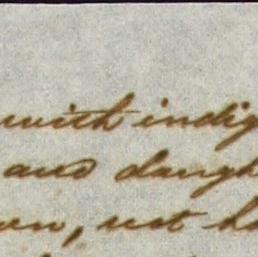 with indig
and daugh
on, not h